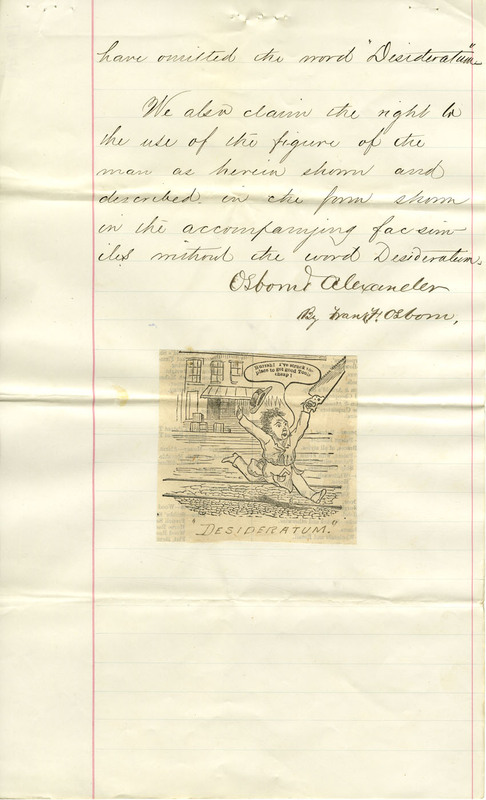 have omitted the word "Desideratum"
We also claim the right to
the use of the figure of the
man as herein shown and
described in the form shown
in the accompanying facsim-
iles without the word Desideratum.
Osborn & Alexander
By Frank Osborn.
Hurrah! I've struck the
place to get good Tools
cheap!
"DESIDERATUM."